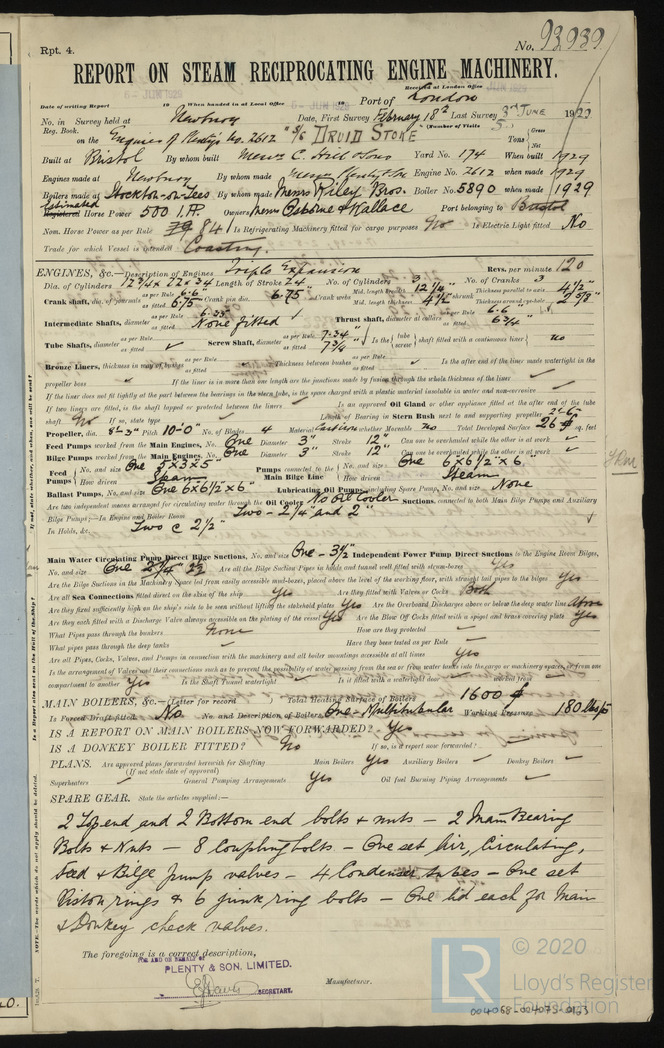 Rpt. 4.
No. 93939
REPORT ON STEAM RECIPROCATING ENGINE MACHINERY.
Received at London Office
6 - JUN 1929
Date of writing Report 19 When handed in at Local Office 6 - JUN 1929 19 Port of London
No. in Survey held at Newbury Date, First Survey February 18th Last Survey 3rd June 1929
Reg. Book. (Number of Visits 5)
on the Engines of Plenty's No. 2612 "S/S DRUID STOKE" Tons Gross Net
Built at Bristol By whom built Messrs C. Hill & Sons Yard No. 174 When built 1929
Engines made at Newbury By whom made Messrs Plenty & Son Engine No. 2612 when made 1929
Boilers made at Stockton-on-Tees By whom made Messrs Riley Bros. Boiler No. 5890 when made 1929
Estimated
Registered Horse Power 500 I.P. Owners Messrs Osborne & Wallace Port belonging to Bristol
Nom. Horse Power as per Rule 84 Is Refrigerating Machinery fitted for cargo purposes No Is Electric Light fitted No
Trade for which Vessel is intended Coasting.
ENGINES, &c.—Description of Engines Triple Expansion Revs. per minute 120
Dia. of Cylinders 12 3/4 x 22 x 34 Length of Stroke 24 No. of Cylinders 3 No. of Cranks 3
Crank shaft, dia. of journals as per Rule 6.6 as fitted 6.75" Crank pin dia. 6.75" Crank webs Mid. length breadth 12 1/4" Mid. length thickness 4 1/2" shrunk Thickness parallel to axis 4 1/2" Thickness around eyehole 2 5/8"
Intermediate Shafts, diameter as per Rule 6.28" as fitted None fitted Thrust shaft, diameter at collars as per Rule 6.6 as fitted 6 3/4"
Tube Shafts, diameter as per Rule as fitted ✓ Screw Shaft, diameter as per Rule 7.34" as fitted 7 3/4" Is the tube screw shaft fitted with a continuous liner no
Bronze Liners, thickness in way of bushes as per Rule as fitted Thickness between bushes as per Rule as fitted Is the after end of the liner made watertight in the
propeller boss ✓ If the liner is in more than one length are the junctions made by fusion through the whole thickness of the liner ✓
If the liner does not fit tightly at the part between the bearings in the stern tube, is the space charged with a plastic material insoluble in water and non-corrosive ✓
If two liners are fitted, is the shaft lapped or protected between the liners ✓ Is an approved Oil Gland or other appliance fitted at the after end of the tube
shaft No If so, state type ✓ Length of Bearing in Stern Bush next to and supporting propeller 2'-6"
Propeller, dia. 8'-3" Pitch 10'-0" No. of Blades 4 Material Cast Iron whether Moveable no Total Developed Surface 26 sq. feet
Feed Pumps worked from the Main Engines, No. One Diameter 3" Stroke 12" Can one be overhauled while the other is at work ✓
Bilge Pumps worked from the Main Engines, No. One Diameter 3" Stroke 12" Can one be overhauled while the other is at work ✓
Feed Pumps No. and size One 5x3x5" How driven Steam Pumps connected to the Main Bilge Line No. and size One 6x6 1/2"x6 How driven Steam
Ballast Pumps, No. and size One 6x6 1/2"x6" Lubricating Oil Pumps, including Spare Pump, No. and size None
Are two independent means arranged for circulating water through the Oil Cooler No Oil Cooler Suctions, connected to both Main Bilge Pumps and Auxiliary
Bilge Pumps;—In Engine and Boiler Room Two - 2 1/4" and 2"
In Holds, &c. Two @ 2 1/2"
Main Water Circulating Pump Direct Bilge Suctions, No. and size One - 3 1/2" Independent Power Pump Direct Suctions to the Engine Room Bilges,
No. and size One 2 3/4" Are all the Bilge Suction Pipes in holds and tunnel well fitted with strum-boxes Yes
Are the Bilge Suctions in the Machinery Space led from easily accessible mud-boxes, placed above the level of the working floor, with straight tail pipes to the bilges Yes
Are all Sea Connections fitted direct on the skin of the ship Yes Are they fitted with Valves or Cocks Both
Are they fixed sufficiently high on the ship's side to be seen without lifting the stokehold plates Yes Are the Overboard Discharges above or below the deep water line Above
Are they each fitted with a Discharge Valve always accessible on the plating of the vessel Yes Are the Blow Off Cocks fitted with a spigot and brass covering plate Yes
What Pipes pass through the bunkers None How are they protected ✓
What pipes pass through the deep tanks ✓ Have they been tested as per Rule ✓
Are all Pipes, Cocks, Valves, and Pumps in connection with the machinery and all boiler mountings accessible at all times Yes
Is the arrangement of Valves and their connections such as to prevent the possibility of water passing from the sea or from water tanks into the cargo or machinery spaces, or from one
compartment to another Yes Is the Shaft Tunnel watertight ✓ Is it fitted with a watertight door ✓ worked from ✓
MAIN BOILERS, &c.—(Letter for record ) Total Heating Surface of Boilers 1600
Is Forced Draft fitted No No. and Description of Boilers One - Multitubular Working Pressure 180 lbs
IS A REPORT ON MAIN BOILERS NOW FORWARDED? Yes
IS A DONKEY BOILER FITTED? No If so, is a report now forwarded?
PLANS. Are approved plans forwarded herewith for Shafting Main Boilers Yes Auxiliary Boilers ✓ Donkey Boilers ✓
(If not state date of approval)
Superheaters ✓ General Pumping Arrangements Yes Oil fuel Burning Piping Arrangements ✓
SPARE GEAR. State the articles supplied:—
2 Top end and 2 Bottom end bolts & nuts — 2 Main Bearing
Bolts & Nuts — 8 coupling bolts — One set Air, Circulating,
Feed & Bilge pump valves — 4 Condenser tubes — One set
Piston rings & 6 junk ring bolts — One lid each for Main
& Donkey check valves.
The foregoing is a correct description,
FOR AND ON BEHALF OF
PLENTY & SON, LIMITED.
SECRETARY.
Manufacturer.
LR © 2020
Lloyd's Register
Foundation
004068-004075-0153